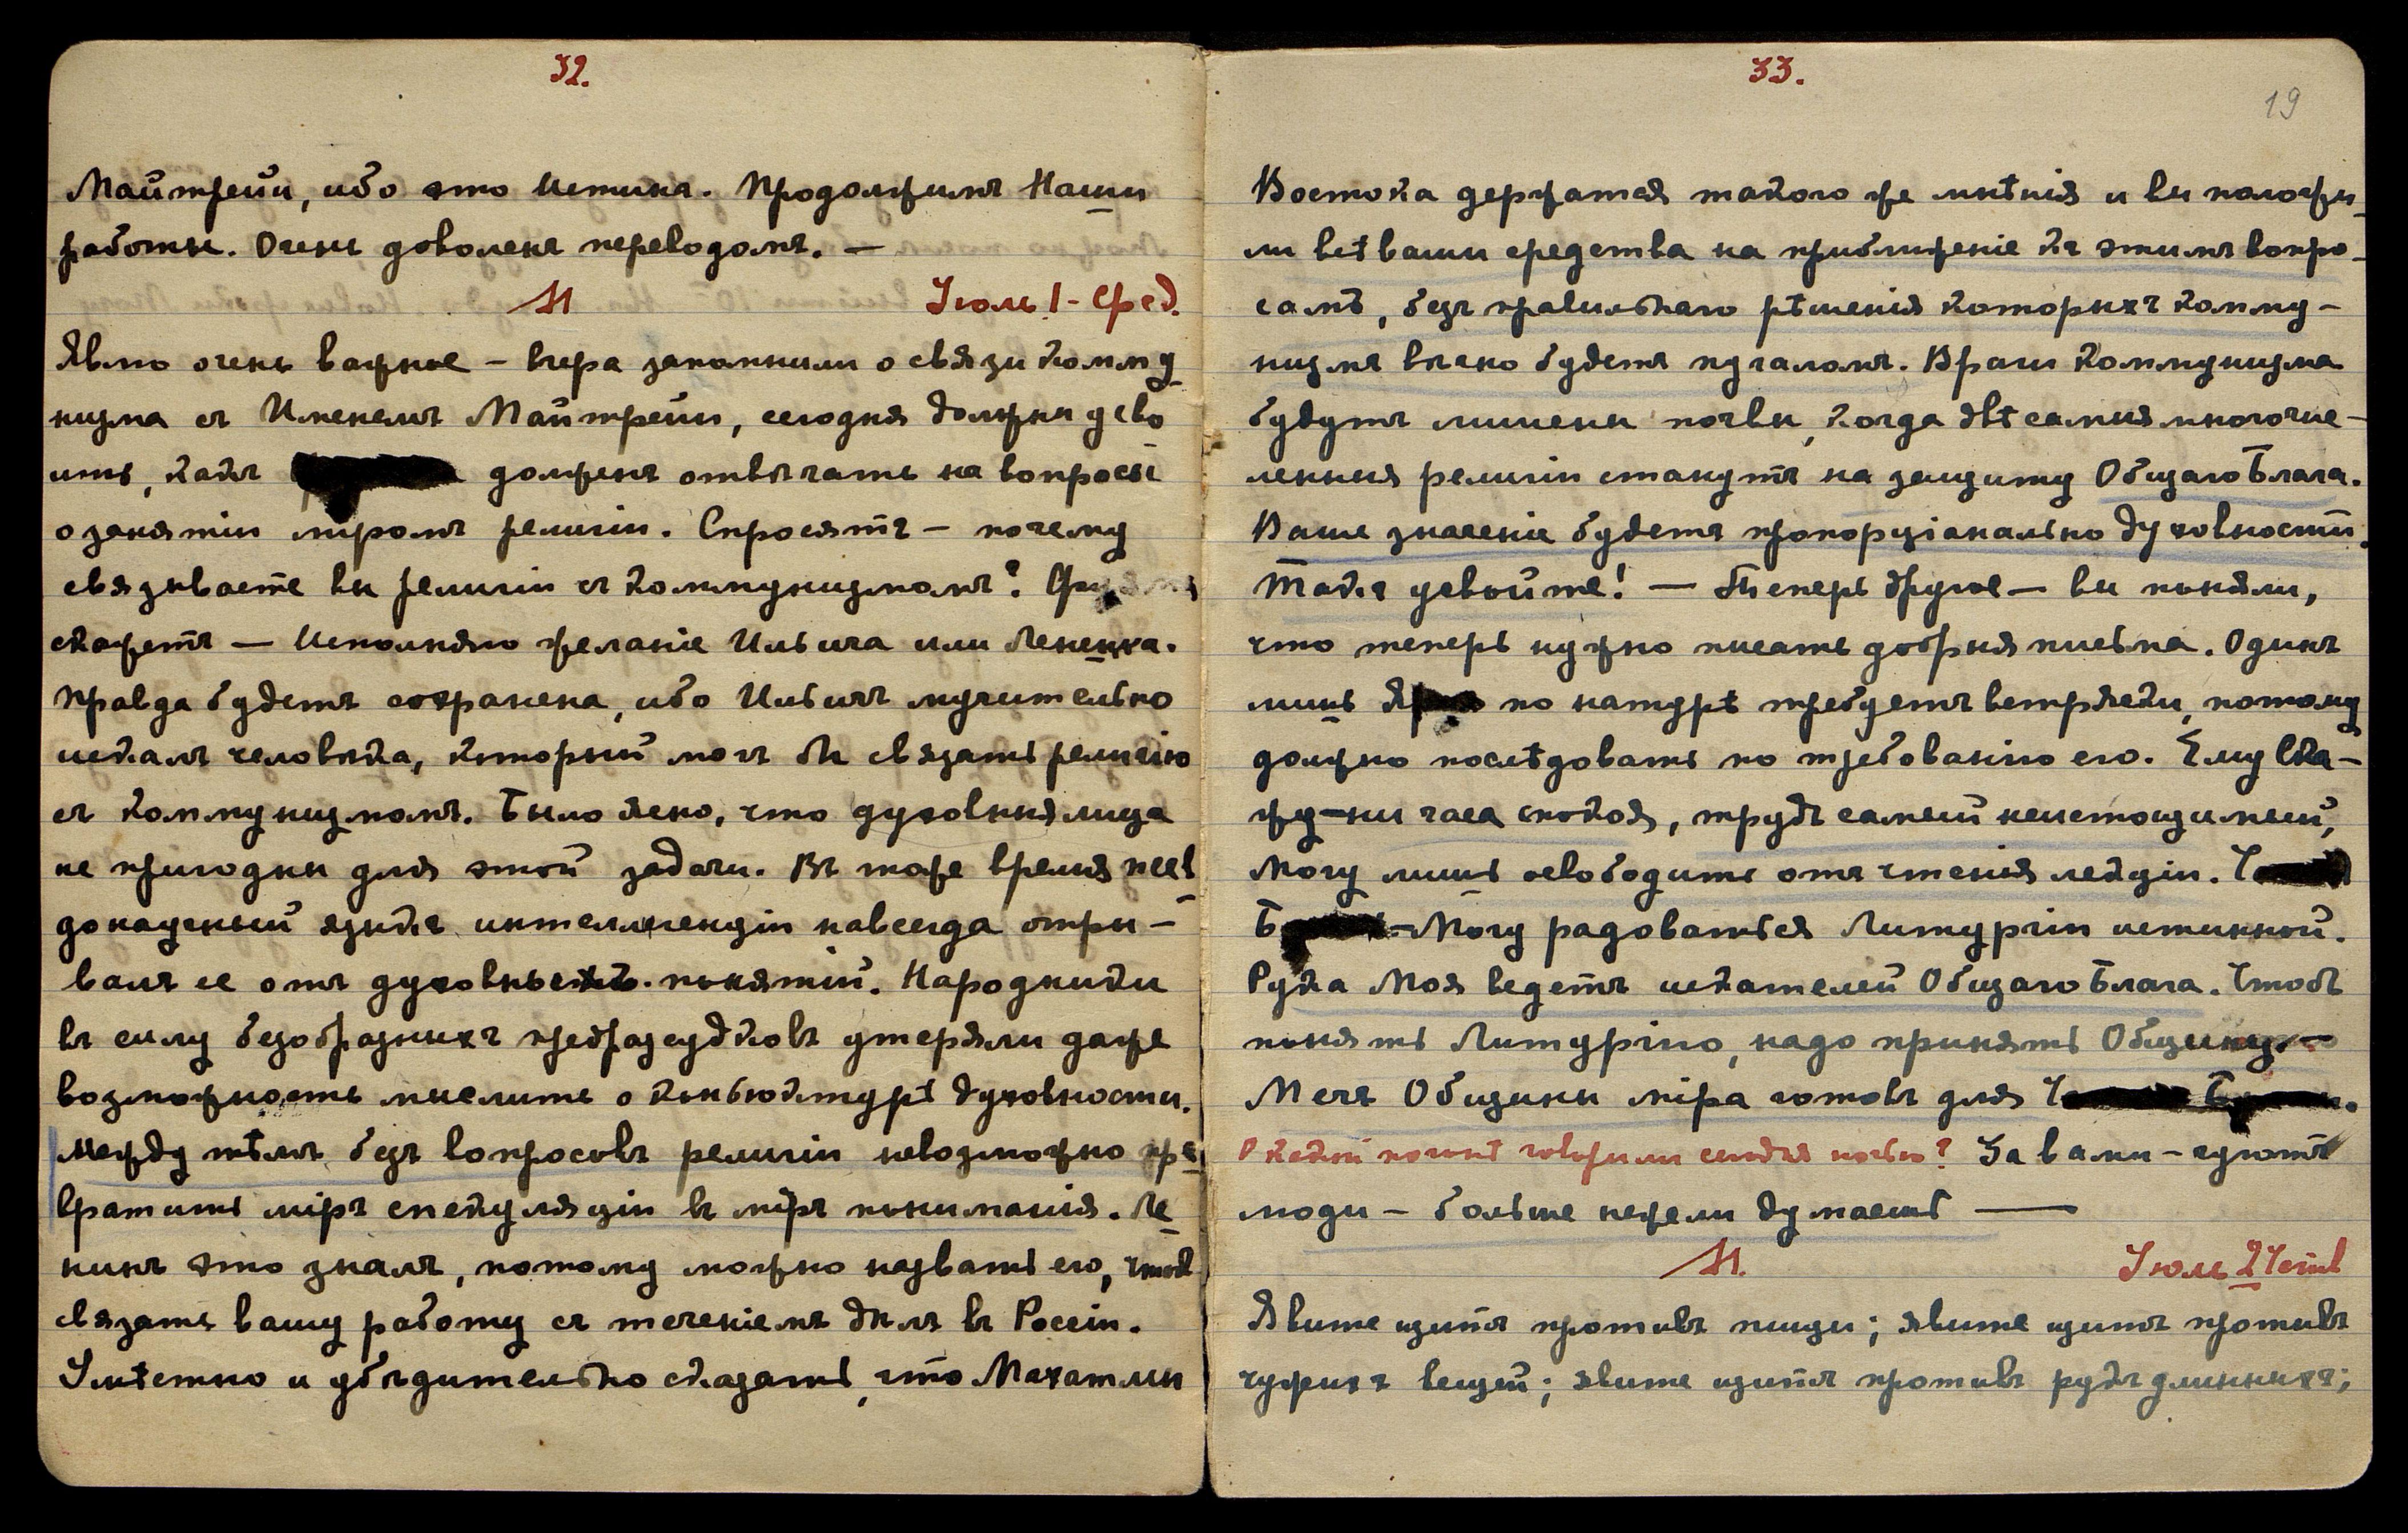 32.
Майтрейи, ибо это Истина. Продолжимъ Наши
работы. Очень доволенъ переводомъ. —
М Іюль 1 - Сред.
Явлю очень важное — вчера запомнили о связи комму-
низма съ Именемъ Майтрейи, сегодня должны усво-
ить, какъ долженъ отвѣчать на вопросы
о занятіи міромъ религіи. Спросятъ — почему
связываете вы религіи съ коммунизмомъ?
скажетъ — Исполняю желаніе Ильича или Ленина.
Правда будетъ сохранена, ибо Ильичъ мучительно
искалъ человѣка, который могъ бы связать религію
съ коммунизмомъ. Было ясно, что духовныя лица
не пригодны для этой задачи. Въ тоже время псев-
донаучный языкъ интеллигенціи навсегда отры-
валъ ее отъ духовныхъ понятій. Народники
въ силу безобразныхъ предразсудковъ утеряли даже
возможность мыслить о конъюктурѣ духовности.
Между тѣмъ безъ вопросовъ религіи невозможно пре-
вратить міръ спекуляціи въ міръ пониманія. Ле-
нинъ это зналъ, потому можно назвать его, чтоб
связать вашу работу съ теченіемъ дѣлъ въ Россіи.
Умѣстно и убѣдительно сказать, что Махатмы
33.
19
Востока держатся такого же мнѣнія и вы положи-
ли всѣ ваши средства на приближеніе къ этимъ вопро-
самъ, безъ правильнаго рѣшенія которыхъ комму-
низмъ вѣчно будетъ пугаломъ. Враги коммунизма
будутъ лишены почвы, когда двѣ самыя многочис-
ленныя религіи станутъ на защиту Общаго Блага.
Ваше значеніе будетъ пропорціанально духовности.
Такъ усвойте! — Теперь другое — вы поняли,
что теперь нужно писать добрыя письма. Одинъ
лишь по натурѣ требуетъ встряски, потому
должно послѣдовать по требованію его. Ему Ска-
жу — ни часа покоя, трудъ самый неистощимый,
Могу лишь освободить отъ чтенія лекціи.
Могу радоваться Литургіи истинной.
Рука Моя ведетъ искателей Общаго Блага. Чтобъ
понять Литургію, надо принять Общину. —
Мечъ Общины міра готовъ для
О какой говорили сегодня ночью? За вами —
люди — больше нежели думаешь —
М. Іюль 2 Четв
Явите щитъ противъ пищи; явите щитъ противъ
чужихъ вещей; явите щитъ противъ рукъ длинныхъ;